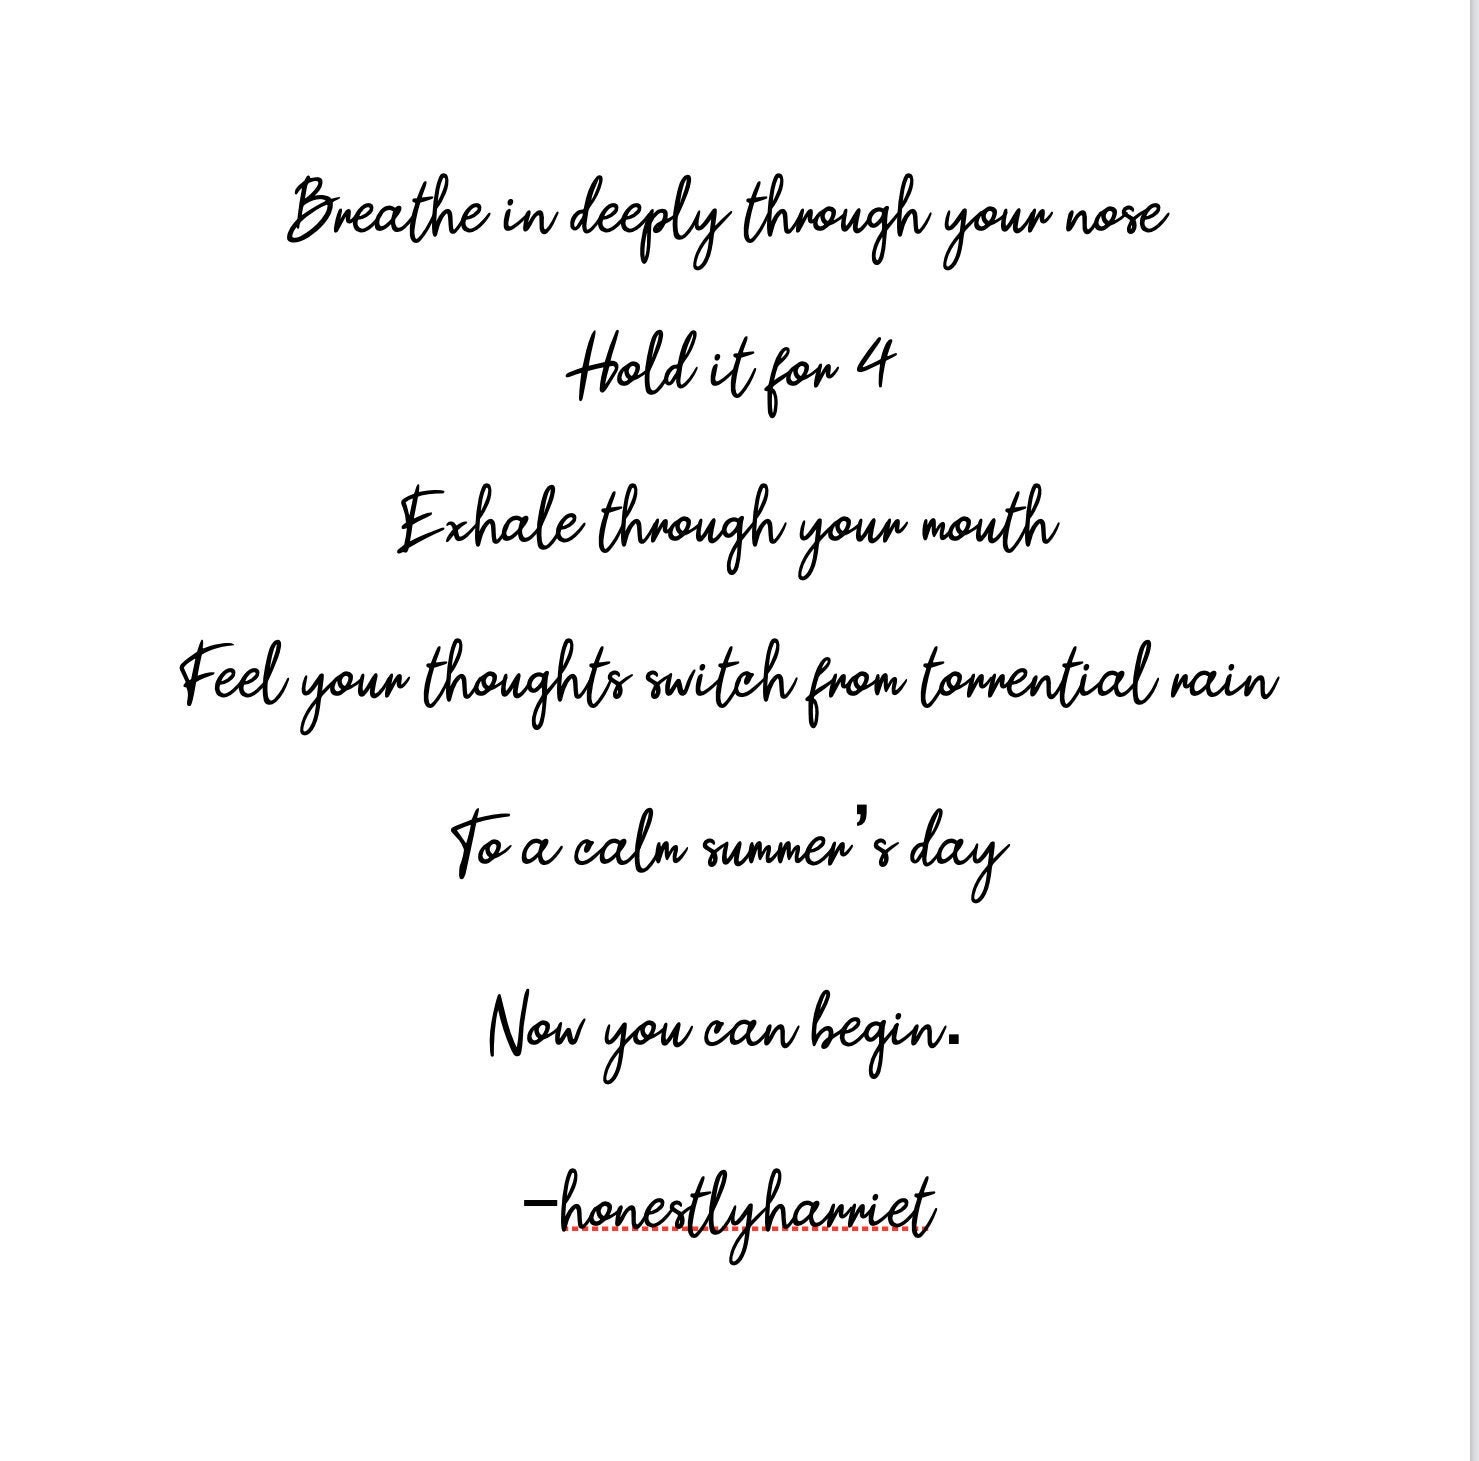 Breathe in deeply through your nose
Hold it for 4
Exhale through your mouth
Feel your thoughts switch from torrential rain
To a calm summer's day
Now you can begin.
-honestlyharriet